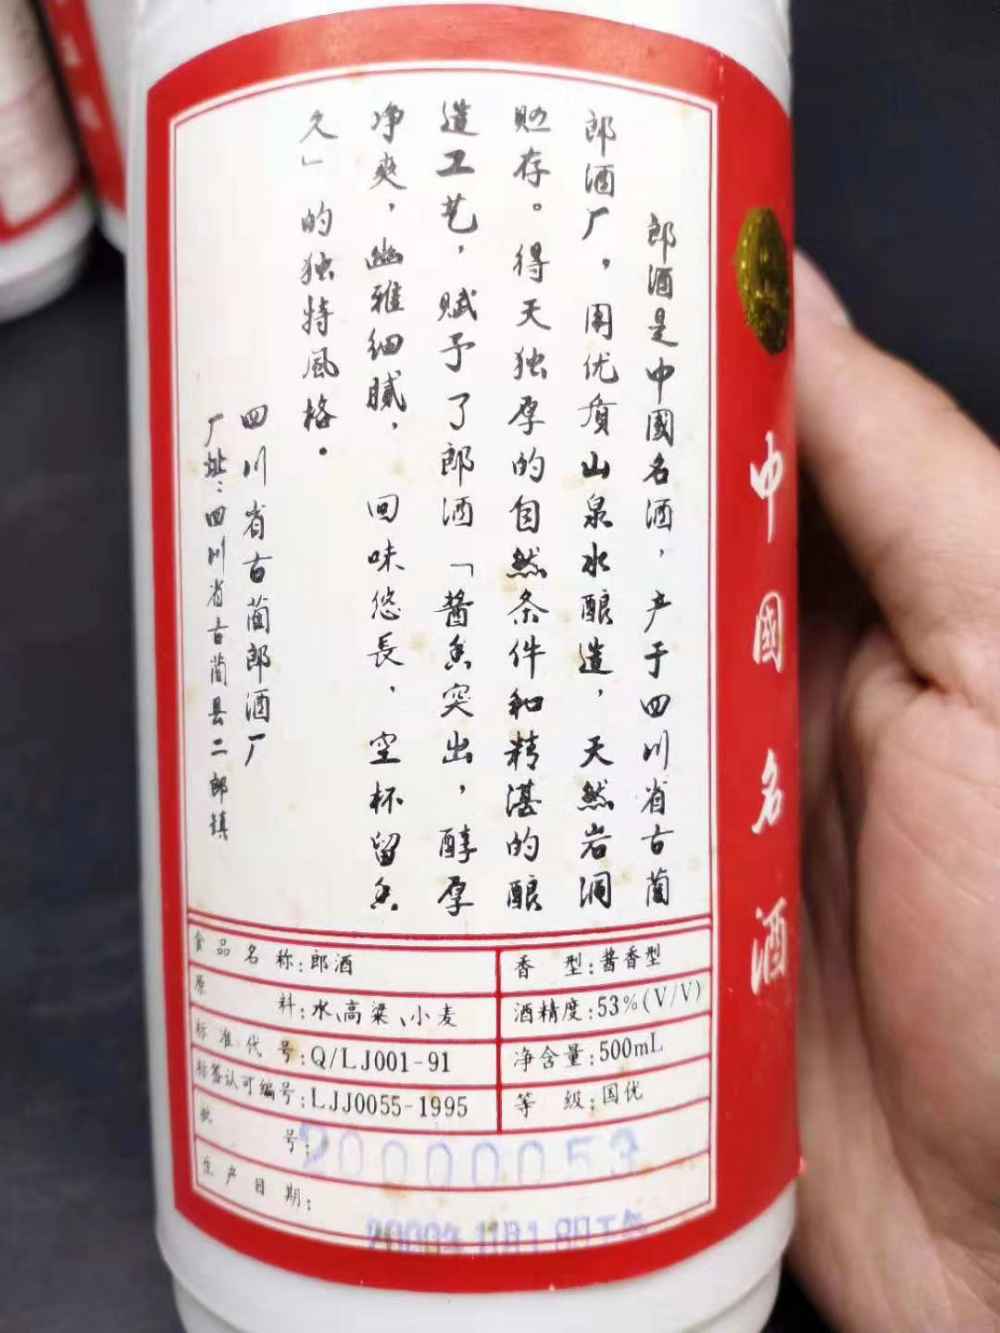 郎酒是中國名酒，产于四川省古蔺
郎酒厂，用优质山泉水酿造，天然岩洞
贮存。得天独厚的自然条件和精湛的酿
造工艺，赋予了郎酒「酱香突出，醇厚
净爽，幽雅细腻，回味悠長，空杯留香
久」的独特風格。
四川省古蔺郎酒厂
厂址：四川省古蔺县二郎镇
中國名酒
食品名称：郎酒
香型：酱香型
原料：水、高粱、小麦
酒精度：53%(V/V)
标准代号：Q/LJ001-91
净含量：500mL
标签认可编号：LJJ0055-1995
等级：国优
批号：20000053
生产日期：